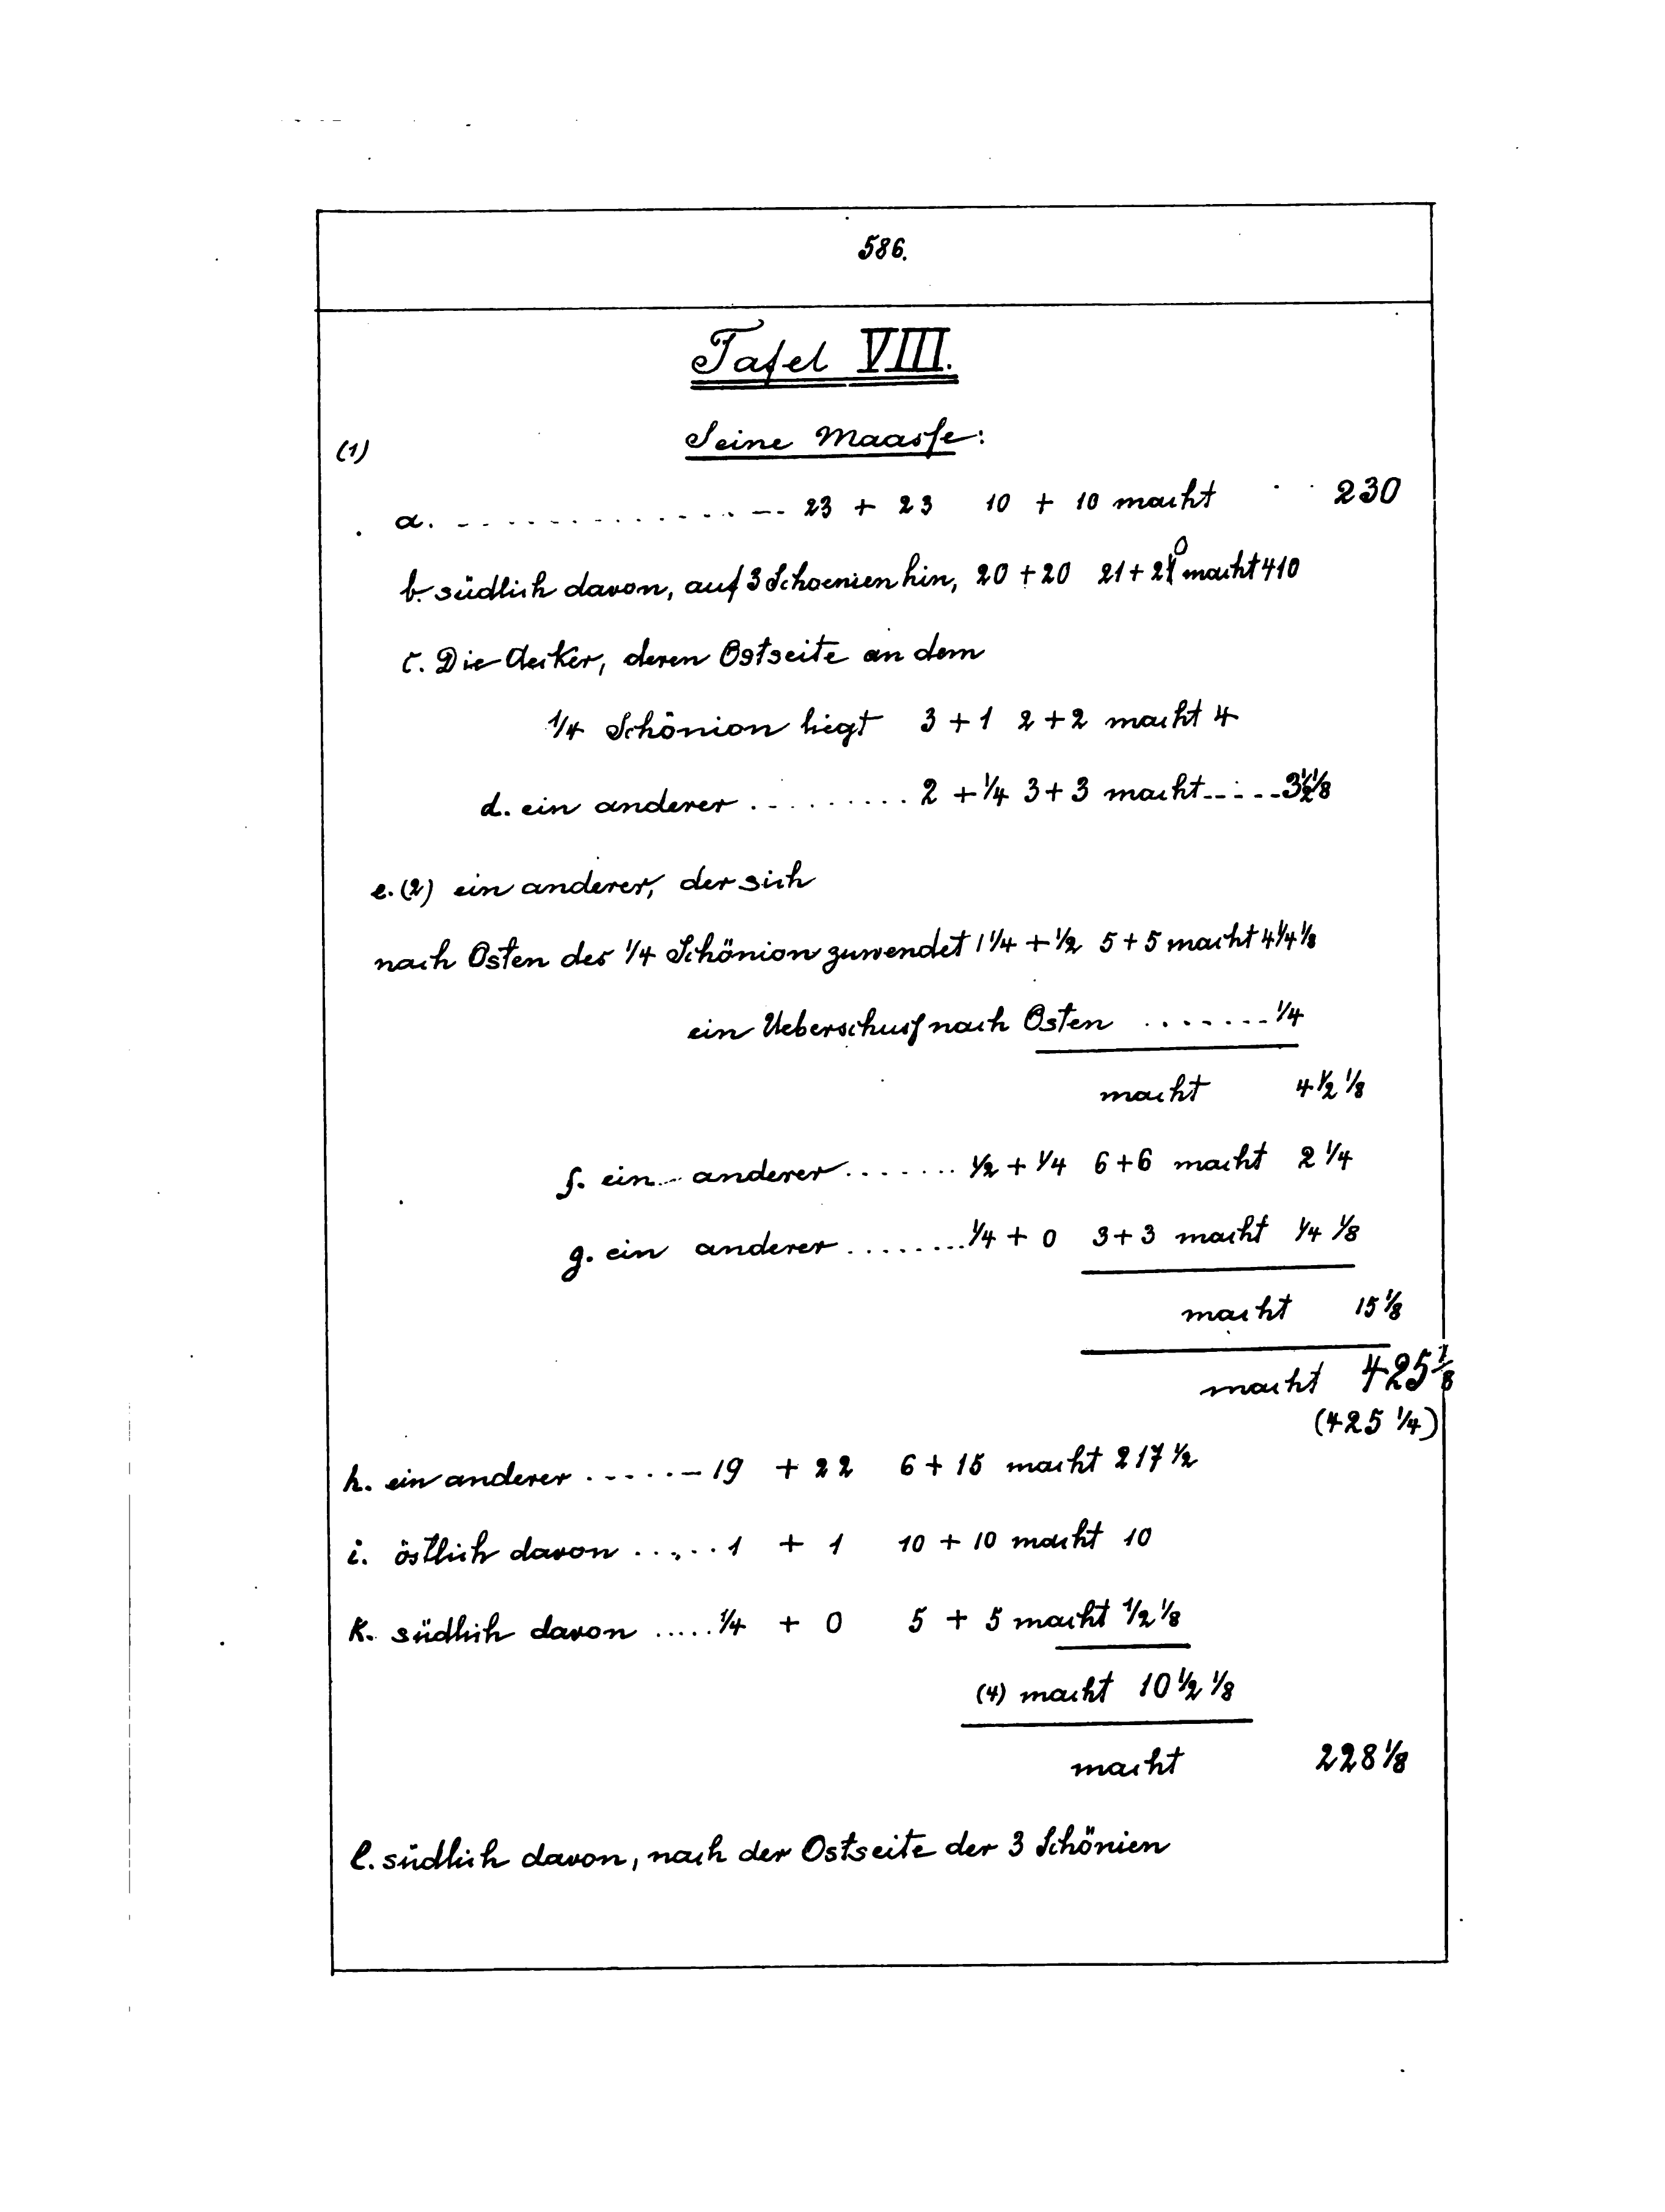 586.
Tafel VIII.
(1) Seine Maasse:
a. ................ 23 + 23 10 + 10 macht .. 230
b. südlich davon, auf 3 Schoenien hin, 20 + 20 21 + 20 macht 410
c. Die Aecker, deren Ostseite an dem
1/4 Schönion liegt 3 + 1 2 + 2 macht 4
d. ein anderer ......... 2 + 1/4 3 + 3 macht ..... 3 1/4 1/8
e. (2) ein anderer, der sich
nach Osten des 1/4 Schönion zuwendet 1 1/4 + 1/2 5 + 5 macht 4 1/4 1/8
ein Ueberschuss nach Osten ....... 1/4
macht 4 1/2 1/8
f. ein anderer ....... 1/2 + 1/4 6 + 6 macht 2 1/4
g. ein anderer ........ 1/4 + 0 3 + 3 macht 1/4 1/8
macht 15 1/8
macht 425 1/8
(425 1/4)
h. ein anderer ...... 19 + 22 6 + 15 macht 217 1/2
i. östlich davon ...... 1 + 1 10 + 10 macht 10
k. südlich davon ..... 1/4 + 0 5 + 5 macht 1/2 1/8
(4) macht 10 1/2 1/8
macht 228 1/8
l. südlich davon, nach der Ostseite der 3 Schönien